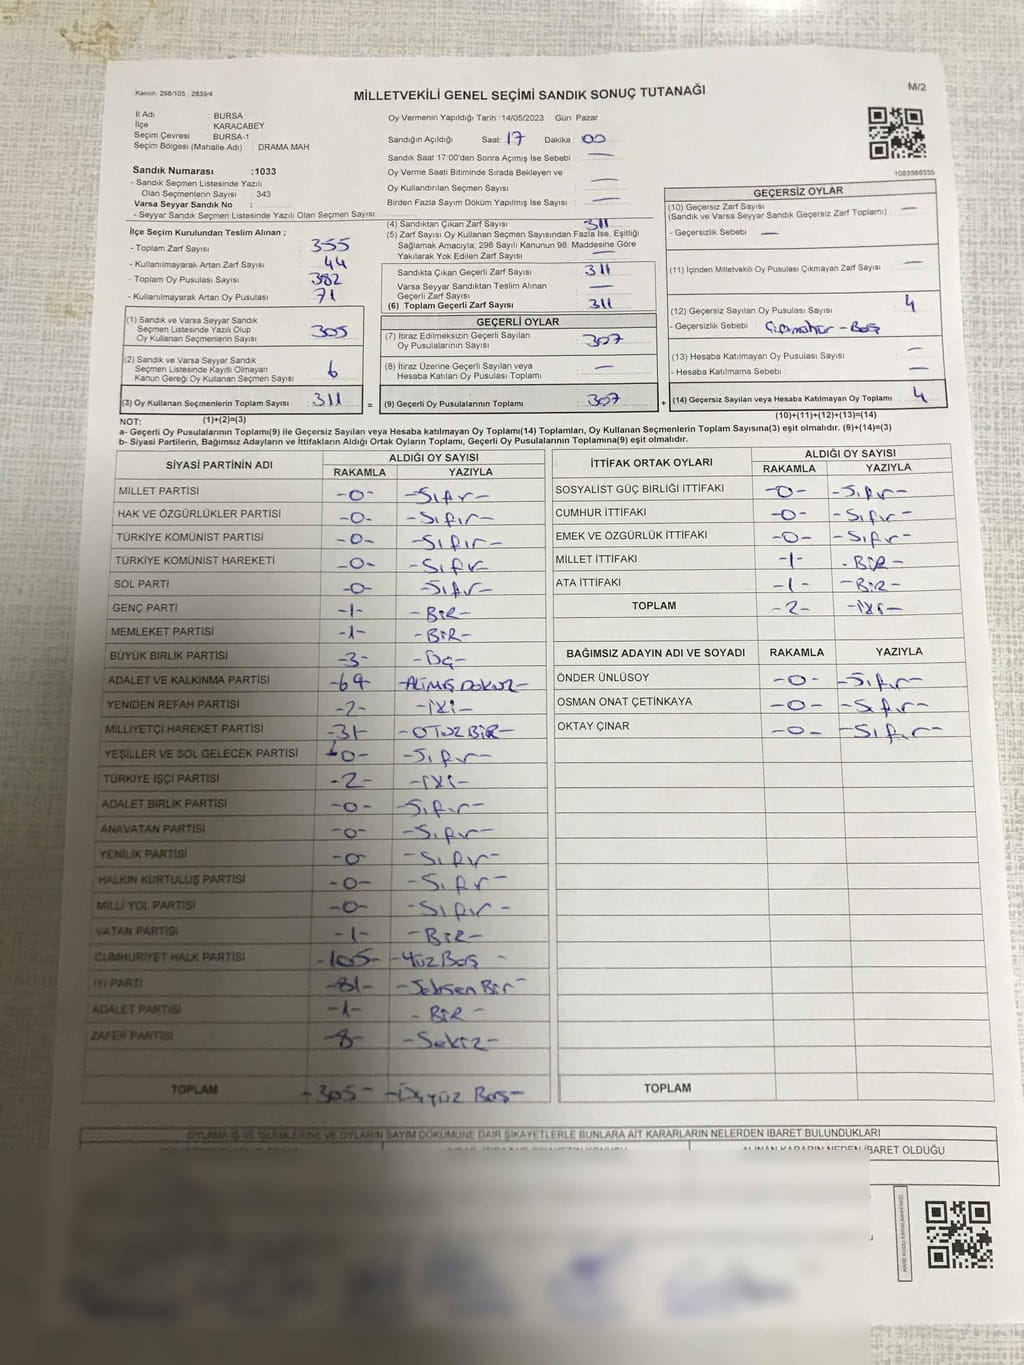 Kanun, 298/105 , 2839/4
M/2
MİLLETVEKİLİ GENEL SEÇİMİ SANDIK SONUÇ TUTANAĞI
İl Adı : BURSA
İlçe : KARACABEY
Seçim Çevresi : BURSA-1
Seçim Bölgesi (Mahalle Adı) : DRAMA MAH.
Sandık Numarası :1033
- Sandık Seçmen Listesinde Yazılı
Olan Seçmenlerin Sayısı : 343
Varsa Seyyar Sandık No :
- Seyyar Sandık Seçmen Listesinde Yazılı Olan Seçmen Sayısı:
Oy Vermenin Yapıldığı Tarih :14/05/2023 Gün Pazar
Sandığın Açıldığı Saat: 17 Dakika 00
Sandık Saat 17:00'den Sonra Açımış İse Sebebi : —
Oy Verme Saati Bitiminde Sırada Bekleyen ve
Oy Kullandırılan Seçmen Sayısı : —
Birden Fazla Sayım Döküm Yapılmış İse Sayısı : —
1083586335
İlçe Seçim Kurulundan Teslim Alınan ;
- Toplam Zarf Sayısı : 355
- Kullanılmayarak Artan Zarf Sayısı : 44
- Toplam Oy Pusulası Sayısı : 382
- Kullanılmayarak Artan Oy Pusulası : 71
(1) Sandık ve Varsa Seyyar Sandık
Seçmen Listesinde Yazılı Olup
Oy Kullanan Seçmenlerin Sayısı : 305
(2) Sandık ve Varsa Seyyar Sandık
Seçmen Listesinde Kayıtlı Olmayan
Kanun Gereği Oy Kullanan Seçmen Sayısı : 6
(3) Oy Kullanan Seçmenlerin Toplam Sayısı : 311 =
(4) Sandıktan Çıkan Zarf Sayısı : 311
(5) Zarf Sayısı Oy Kullanan Seçmen Sayısından Fazla İse, Eşitliği
Sağlamak Amacıyla, 298 Sayılı Kanunun 98. Maddesine Göre
Yakılarak Yok Edilen Zarf Sayısı : —
Sandıkta Çıkan Geçerli Zarf Sayısı : 311
Varsa Seyyar Sandıktan Teslim Alınan
Geçerli Zarf Sayısı : —
(6) Toplam Geçerli Zarf Sayısı : 311
GEÇERLİ OYLAR
(7) İtiraz Edilmeksizin Geçerli Sayılan
Oy Pusulalarının Sayısı : 307
(8) İtiraz Üzerine Geçerli Sayılan veya
Hesaba Katılan Oy Pusulası Toplamı : —
(9) Geçerli Oy Pusulalarının Toplamı : 307 +
GEÇERSİZ OYLAR
(10) Geçersiz Zarf Sayısı : —
(Sandık ve Varsa Seyyar Sandık Geçersiz Zarf Toplamı)
- Geçersizlik Sebebi : —
(11) İçinden Milletvekili Oy Pusulası Çıkmayan Zarf Sayısı : —
(12) Geçersiz Sayılan Oy Pusulası Sayısı : 4
- Geçersizlik Sebebi : - Boş
(13) Hesaba Katılmayan Oy Pusulası Sayısı : —
- Hesaba Katılmama Sebebi : —
(14) Geçersiz Sayılan veya Hesaba Katılmayan Oy Toplamı : 4
NOT: (1)+(2)=(3)
(10)+(11)+(12)+(13)=(14)
a- Geçerli Oy Pusulalarının Toplamı(9) ile Geçersiz Sayılan veya Hesaba katılmayan Oy Toplamı(14) Toplamları, Oy Kullanan Seçmenlerin Toplam Sayısına(3) eşit olmalıdır. (9)+(14)=(3)
b- Siyasi Partilerin, Bağımsız Adayların ve İttifakların Aldığı Ortak Oyların Toplamı, Geçerli Oy Pusulalarının Toplamına(9) eşit olmalıdır.
SİYASİ PARTİNİN ADI ALDIĞI OY SAYISI
RAKAMLA YAZIYLA
MİLLET PARTİSİ -0- -Sıfır-
HAK VE ÖZGÜRLÜKLER PARTİSİ -0- -Sıfır-
TÜRKİYE KOMÜNİST PARTİSİ -0- -Sıfır-
TÜRKİYE KOMÜNİST HAREKETİ -0- -Sıfır
SOL PARTİ -0- -Sıfır-
GENÇ PARTİ -1- -BİR-
MEMLEKET PARTİSİ -1- -BİR-
BÜYÜK BİRLİK PARTİSİ -3- -Üç-
ADALET VE KALKINMA PARTİSİ -69 -ALTMIŞ DOKUZ-
YENİDEN REFAH PARTİSİ -2- -İKİ-
MİLLİYETÇİ HAREKET PARTİSİ -31- -OTUZ BİR-
YEŞİLLER VE SOL GELECEK PARTİSİ -0- -Sıfır-
TÜRKİYE İŞÇİ PARTİSİ -2- -İKİ-
ADALET BİRLİK PARTİSİ -0- -Sıfır-
ANAVATAN PARTİSİ -0- -Sıfır-
YENİLİK PARTİSİ -0- -Sıfır-
HALKIN KURTULUŞ PARTİSİ -0- -Sıfır-
MİLLİ YOL PARTİSİ -0- -Sıfır-
VATAN PARTİSİ -1- -BİR-
CUMHURİYET HALK PARTİSİ -105- -Yüz Beş -
İYİ PARTİ -81- -Seksen Bir-
ADALET PARTİSİ -1- - BİR -
ZAFER PARTİSİ -8- -Sekiz-
TOPLAM -305- -Üçyüz Beş-
İTTİFAK ORTAK OYLARI ALDIĞI OY SAYISI
RAKAMLA YAZIYLA
SOSYALİST GÜÇ BİRLİĞİ İTTİFAKI -0- -Sıfır-
CUMHUR İTTİFAKI -0- -Sıfır-
EMEK VE ÖZGÜRLÜK İTTİFAKI -0- -Sıfır-
MİLLET İTTİFAKI -1- -BİR-
ATA İTTİFAKI -1- -BİR-
TOPLAM -2- -İKİ-
BAĞIMSIZ ADAYIN ADI VE SOYADI RAKAMLA YAZIYLA
ÖNDER ÜNLÜSOY -0- -Sıfır-
OSMAN ONAT ÇETİNKAYA -0- -Sıfır-
OKTAY ÇINAR -0- -Sıfır-
TOPLAM
OYLAMA İŞ VE İŞLEMLERİNE VE OYLARIN SAYIM DÖKÜMÜNE DAİR ŞİKAYETLERLE BUNLARA AİT KARARLARIN NELERDEN İBARET BULUNDUKLARI
ALINAN KARARIN NEDEN İBARET OLDUĞU